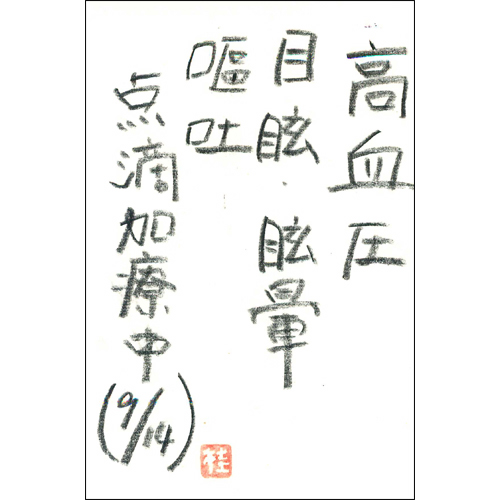 高血圧
目眩・眩暈
嘔吐
点滴加療中
(9/14)
桂